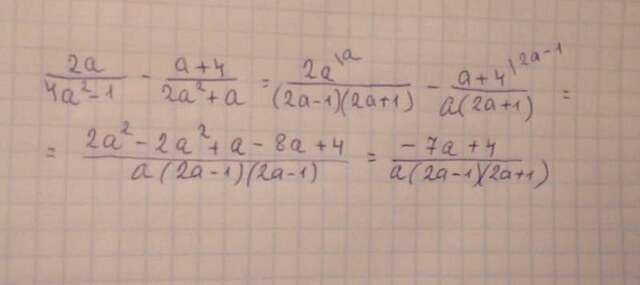 2a/(4a²-1) - (a+4)/(2a²+a) = 2a\a/((2a-1)(2a+1)) - (a+4)\2a-1/(a(2a+1)) =
= (2a²-2a²+a-8a+4)/(a(2a-1)(2a-1)) = (-7a+4)/(a(2a-1)(2a+1))